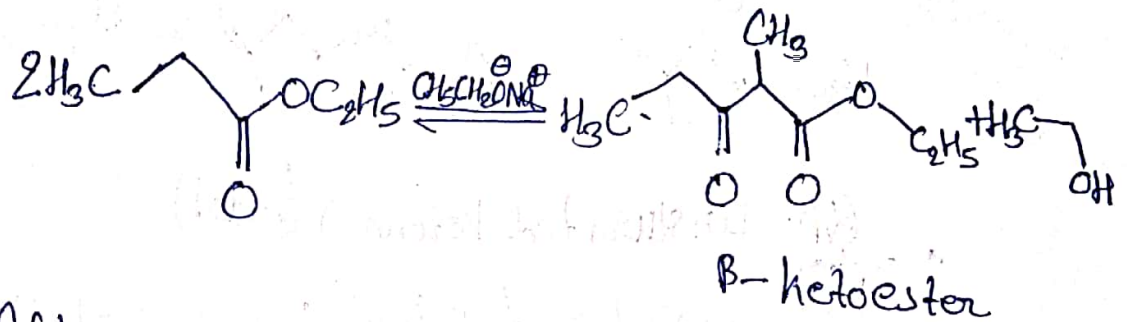 CH₃
2H₃C OC₂H₅ CH₃CH₂O⊖Na⊕ H₃C O C₂H₅ +H₃C
O O O OH
β- ketoester